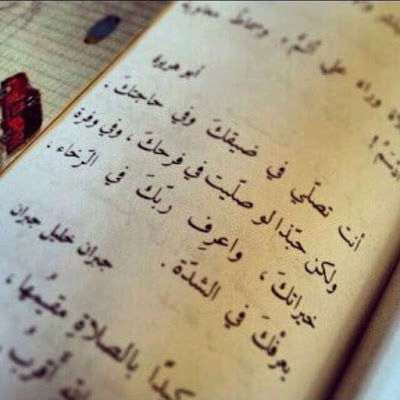 وراء على
أبو هريرة
أنت تصلّي في ضيقكَ وفي حاجتكَ.
ولكن حبّذا لو صلّيت في فرحكَ، وفي وفرة
خيراتكَ، واعرِف ربّكَ في الرّخاء،
يعرفْكَ في الشدّة.
جبران خليل جبران
بالصلاةِ مقيمُها،
أقربُ